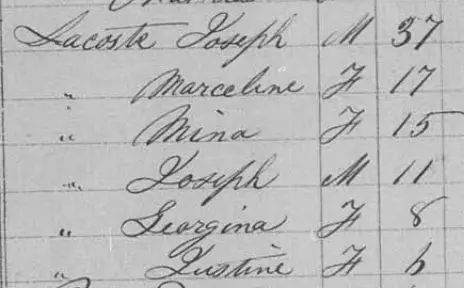 Lacoste Joseph M 37
" Marceline F 17
" Mina F 15
" Joseph M 11
" Georgina F 8
" Justine F 6